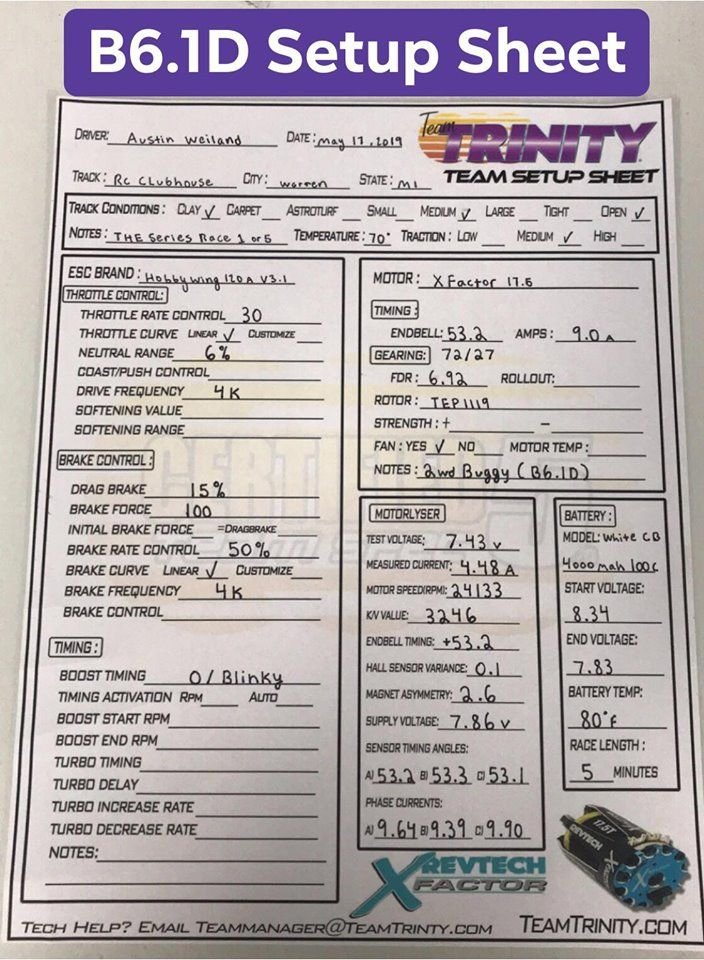 B6.1D Setup Sheet
DRIVER: Austin Weiland DATE: May 17, 2019
Team TRINITY
TEAM SETUP SHEET
TRACK: RC Clubhouse CITY: Warren STATE: MI
TRACK CONDITIONS: CLAY ✓ CARPET ASTROTURF SMALL MEDIUM ✓ LARGE TIGHT OPEN ✓
NOTES: THE Series Race 1 of 5 TEMPERATURE: 70° TRACTION: LOW MEDIUM ✓ HIGH
ESC BRAND: Hobbywing 120A V3.1
THROTTLE CONTROL:
THROTTLE RATE CONTROL 30
THROTTLE CURVE LINEAR ✓ CUSTOMIZE
NEUTRAL RANGE 6%
COAST/PUSH CONTROL
DRIVE FREQUENCY 4K
SOFTENING VALUE
SOFTENING RANGE
BRAKE CONTROL:
DRAG BRAKE 15%
BRAKE FORCE 100
INITIAL BRAKE FORCE =DRAGBRAKE
BRAKE RATE CONTROL 50%
BRAKE CURVE LINEAR ✓ CUSTOMIZE
BRAKE FREQUENCY 4K
BRAKE CONTROL
TIMING:
BOOST TIMING 0/Blinky
TIMING ACTIVATION RPM AUTO
BOOST START RPM
BOOST END RPM
TURBO TIMING
TURBO DELAY
TURBO INCREASE RATE
TURBO DECREASE RATE
NOTES:
MOTOR: X Factor 17.5
TIMING:
ENDBELL: 53.2 AMPS: 9.0A
GEARING: 72/27
FDR: 6.92 ROLLOUT:
ROTOR: TEP1119
STRENGTH: + -
FAN: YES ✓ NO MOTOR TEMP:
NOTES: 2wd Buggy (B6.1D)
MOTORLYSER
TEST VOLTAGE: 7.43 v
MEASURED CURRENT: 4.48 A
MOTOR SPEED(RPM): 24133
K/V VALUE: 3246
ENDBELL TIMING: +53.2
HALL SENSOR VARIANCE: 0.1
MAGNET ASYMMETRY: 2.6
SUPPLY VOLTAGE: 7.86 v
SENSOR TIMING ANGLES:
A) 53.2 B) 53.3 C) 53.1
PHASE CURRENTS:
A) 9.64 B) 9.39 C) 9.90
BATTERY:
MODEL: White CB
4000 mah 100c
START VOLTAGE:
8.34
END VOLTAGE:
7.83
BATTERY TEMP:
80°F
RACE LENGTH:
5 MINUTES
CERTIFIED
X REVTECH
FACTOR
REVTECH
17.5T
TECH HELP? EMAIL TEAMMANAGER@TEAMTRINTY.COM
TEAMTRINITY.COM